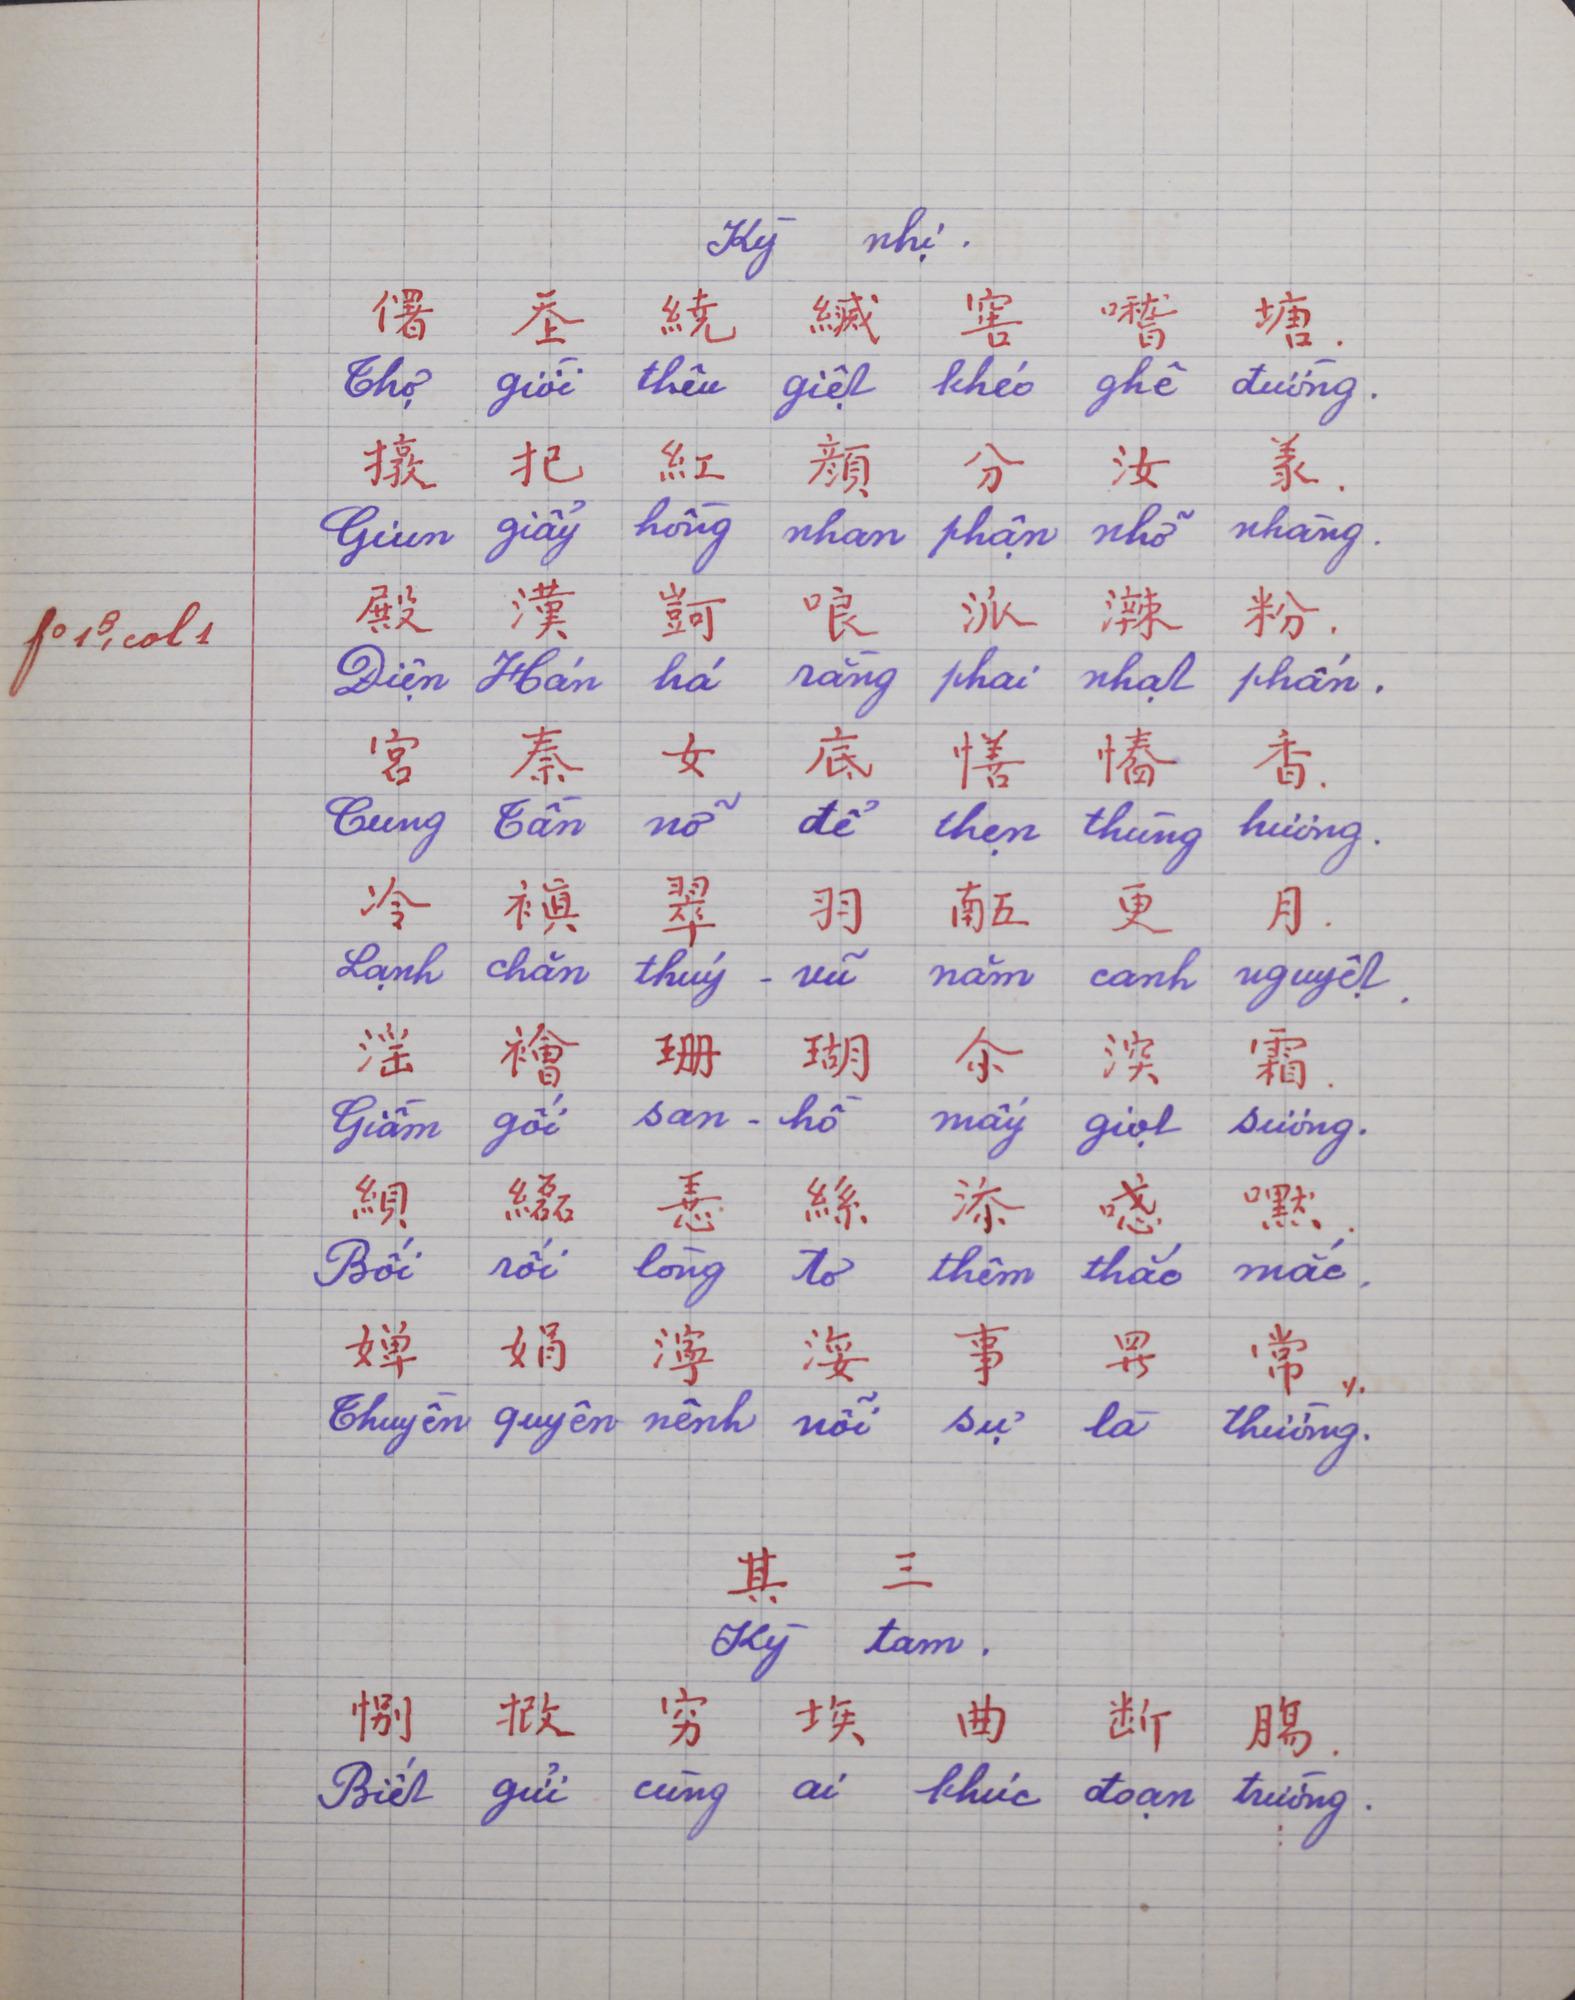 Kỳ nhị.
𠎬 𡗶 繞 緘 窖 𠾕 塘.
Thợ giời thêu giệt khéo ghê đường.
撴 扺 紅 顔 分 汝 羕.
Giun giẩy hồng nhan phận nhỡ nhàng.
殿 漢 哏 派 粉.
Điện Hán há rằng phai nhạt phấn.
f° 1ᴮ, col 1
宮 秦 女 底 𢢆 𢢈 香.
Cung Tần nỡ để thẹn thùng hương.
冷 禛 翠 羽 𠄼 更 月.
Lạnh chăn thuý - vũ năm canh nguyệt.
滛 襘 珊 瑚 尒 湥 霜.
Giầm gối san - hồ mấy giọt sương.
絸 𦇒 𢚸 絲 添 嘿.
Bối rối lòng tơ thêm thắc mắc.
嬋 娟 濘 浽 事 𱺵 常
Thuyền quyên nênh nỗi sự là thường.
其 三
Kỳ tam.
𢠤 𢭮 穷 埃 曲 断 腸.
Biết gửi cùng ai khúc đoạn trường.